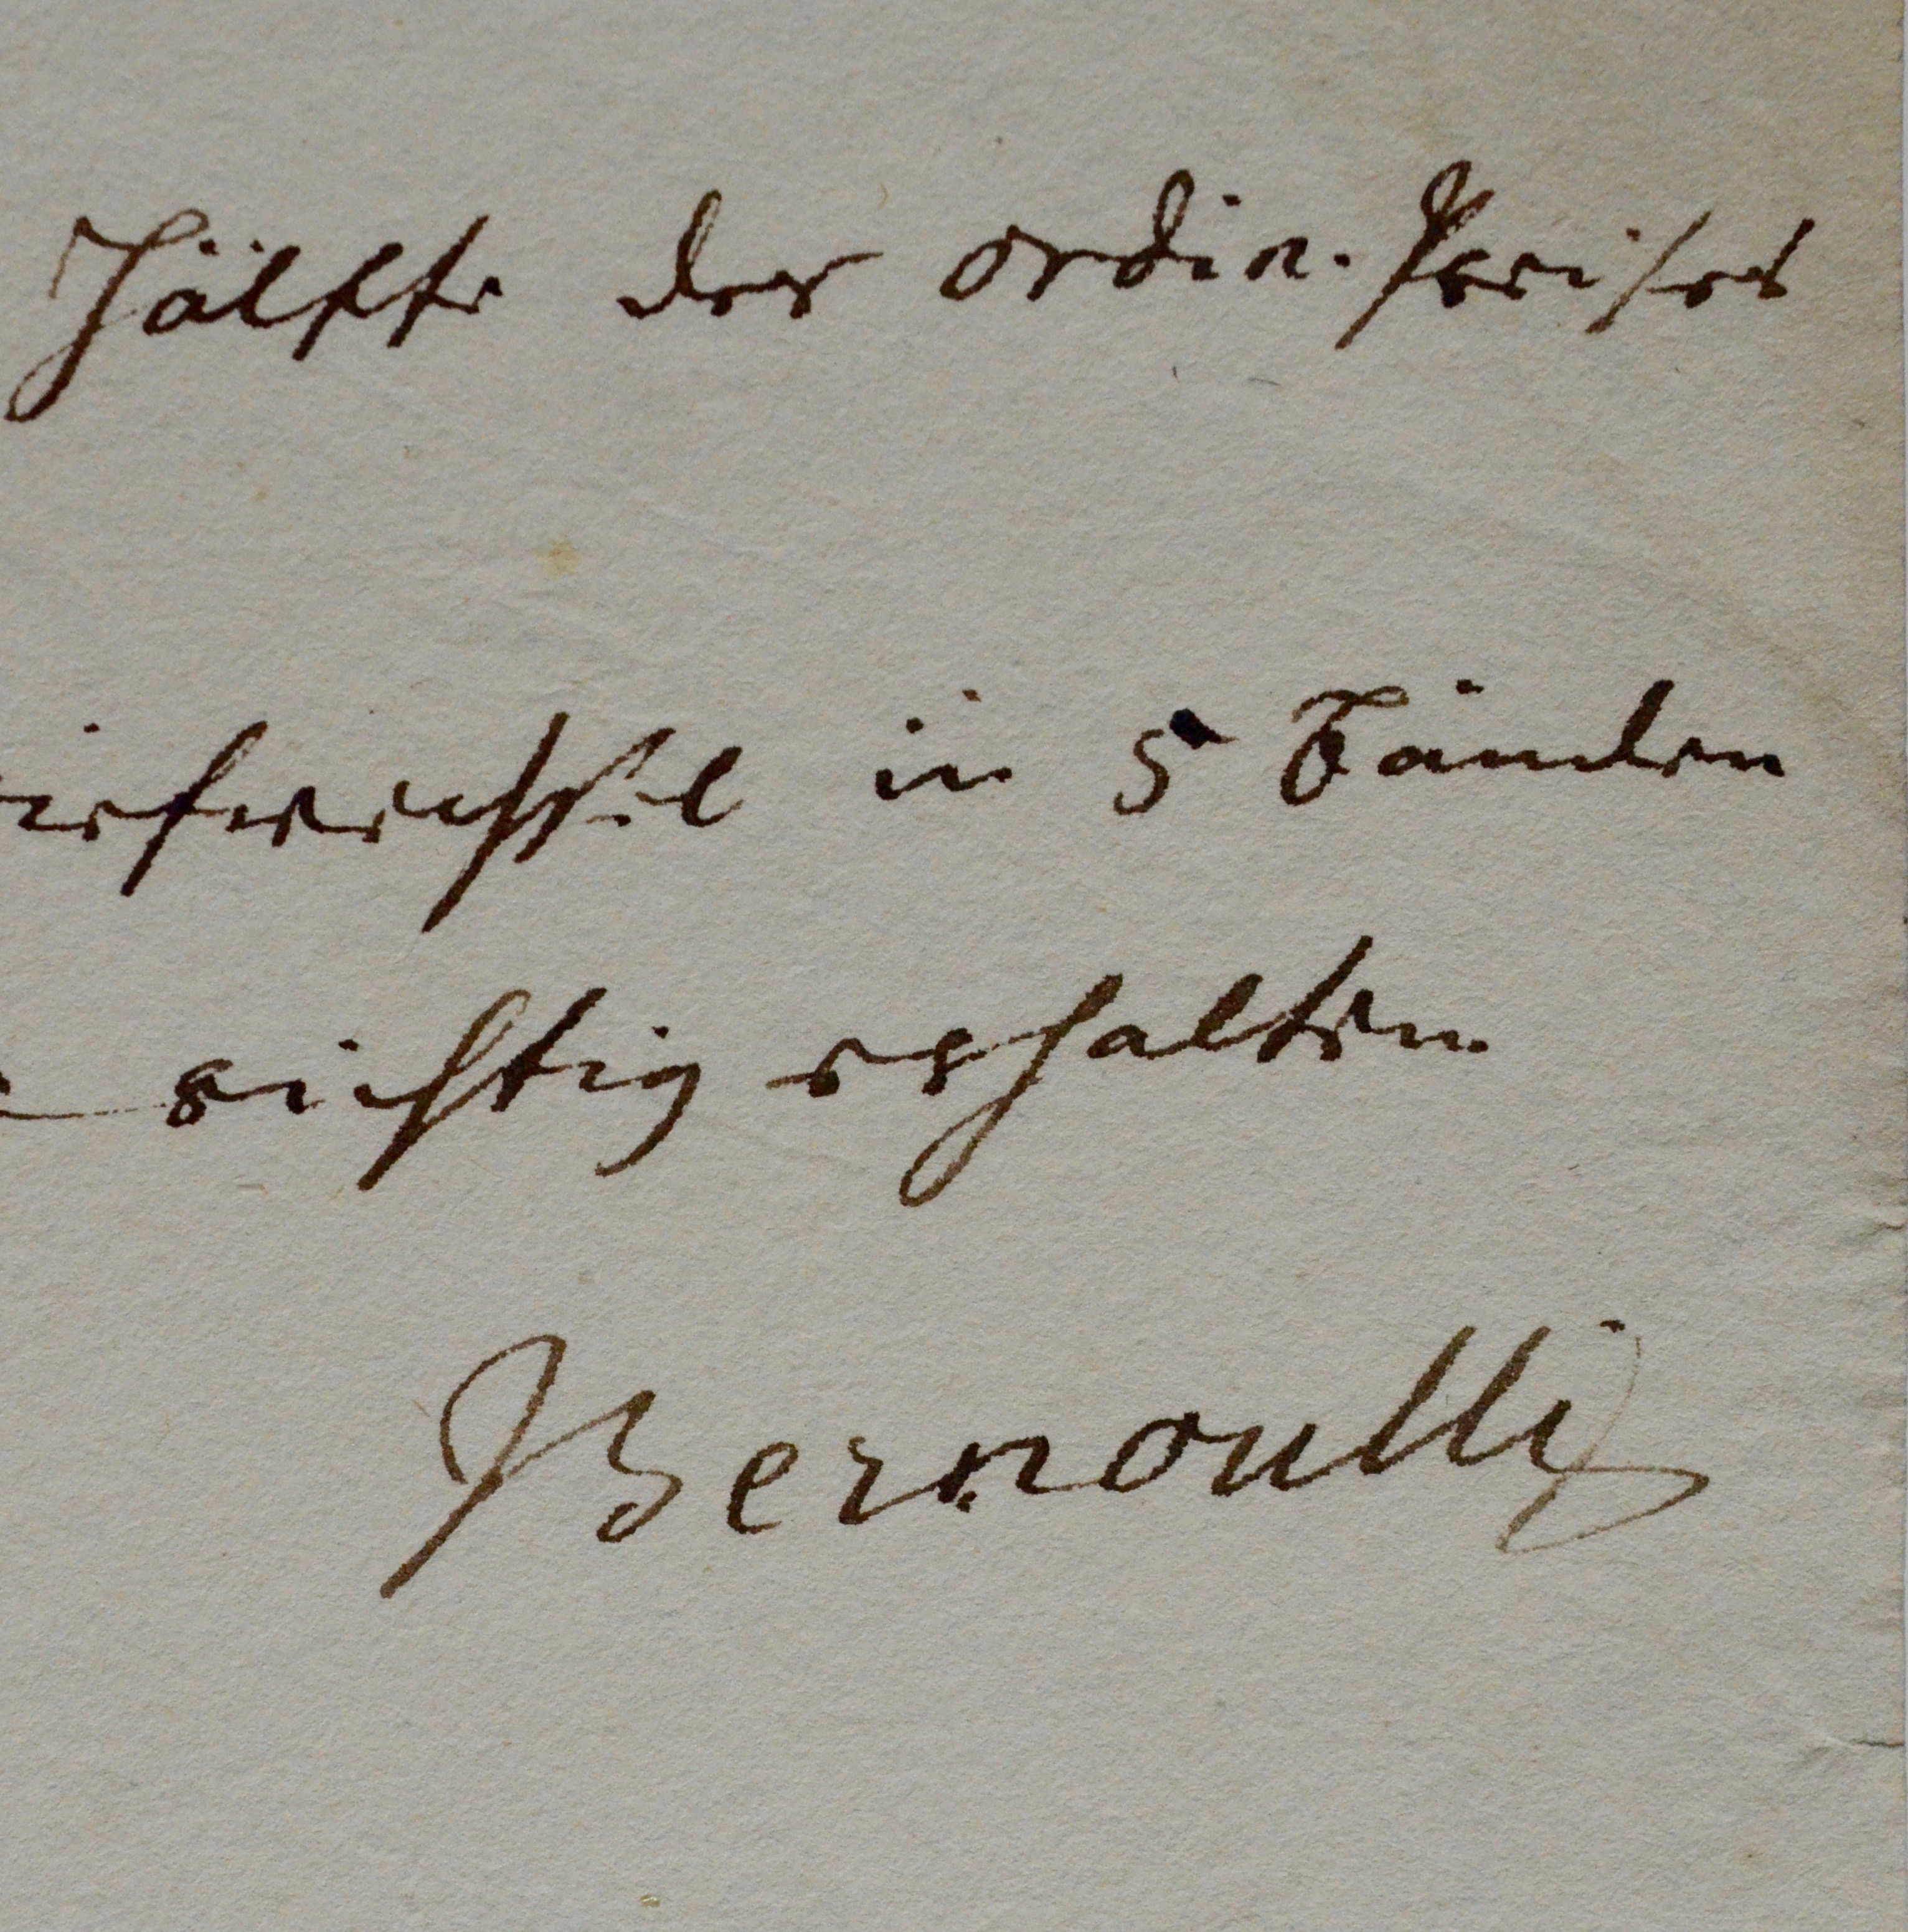 Hälfte des ordin. Preises
iefwechsel in 5 Bänden
richtig erhalten
Bernoulli